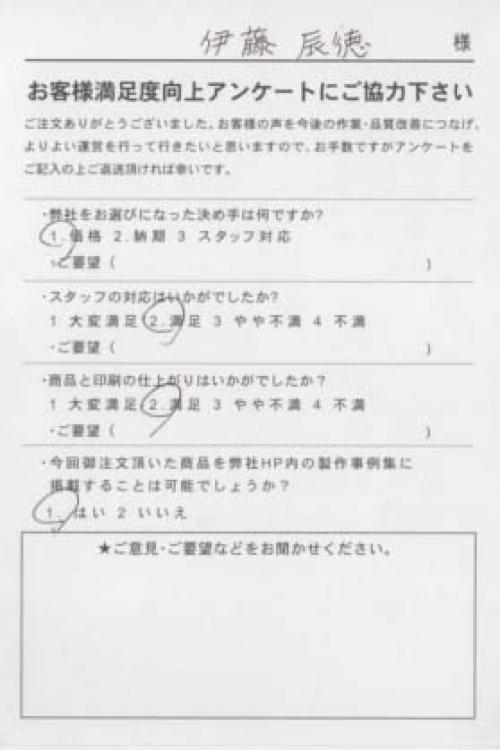 伊藤 辰徳 様
お客様満足度向上アンケートにご協力下さい
ご注文ありがとうございました。お客様の声を今後の作業・品質改善につなげ、
よりよい運営を行って行きたいと思いますので、お手数ですがアンケートを
ご記入の上ご返送頂ければ幸いです。
・弊社をお選びになった決め手は何ですか?
1.価格 2.納期 3 スタッフ対応
・ご要望 ( )
・スタッフの対応はいかがでしたか?
1 大変満足 2.満足 3 やや不満 4 不満
・ご要望 ( )
・商品と印刷の仕上がりはいかがでしたか?
1 大変満足 2.満足 3 やや不満 4 不満
・ご要望 ( )
・今回御注文頂いた商品を弊社HP内の製作事例集に
掲載することは可能でしょうか?
1. はい 2 いいえ
★ご意見・ご要望などをお聞かせください。